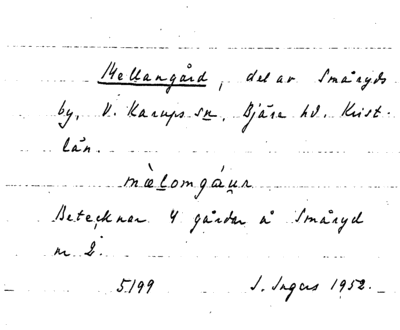 Mellangård, del av Småryds
by, V. Karups sn, Bjäre hd. Krist.
län.
mæ̀lomgáu̯r
Betecknar 4 gårdar å Småryd
nr 2.
5199 S. Ingers 1952.